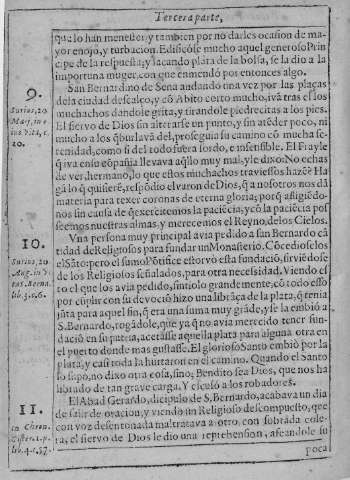 Tercera parte,
que lo han menester: y tambien por no darles ocasion de ma-
yor enojo, y turbacion. Edificose mucho aquel generoso Prin
cipe de la respuesta: y sacando plata de la bolsa, se la dio a la
importuna muger, con que enmendó por entonces algo.
9.
San Bernardino de Sena andando una vez por las plaças
Surius, 20
de la ciudad descalço, y cõ Abito corto mucho, iva tras el los
May, in e
muchachos dandole grita, y tirandole piedrecitas a los pies.
ius vita, c.
El siervo de Dios sin alterarse un punto, y sin atẽder poco, ni
20.
mucho a los q̃ burlavã del, proseguia su camino cõ mucha se-
renidad, como si del todo fuera sordo, e insensible. El Frayle
q̃ iva en su cõpañia llevava aq̃llo muy mal, y le dixo: No echas
de ver, hermano, lo que estos muchachos traviessos hazẽ? Ha
gã lo q̃ quisierẽ, respõdio el varon de Dios, q̃ a nosotros nos dã
materia para texer coronas de eterna gloria; porq̃ afligiẽdo-
nos sin causa de q̃ exercitemos la paciẽcia, y cõ la paciẽcia pos
seemos nuestras almas, y merecemos el Reyno, de los Cielos.
10.
Vna persona muy principal avia pedido a san Bernardo cã
Surius, 20
tidad de Religiosos para fundar un Monasterio. Cõcedioselos
Aug. in vi
el Sãto: pero el sumo Põtifice estorvó esta fundació, sirviẽdose
ta s. Berna.
de los Religiosos señalados, para otra necesidad. Viendo es
lib. 3. c. 6.
to el que los avia pedido, sintiolo grandemente, cõ todo esso
por cũplir con su devoció hizo una librãça de la plata, q̃ tenia
jũta para aquel fin, q̃ era una suma muy grãde, y se la embió a
S. Bernardo, rogãdole, que ya q̃ no avia merecido tener fun-
dació en su patria, acetasse aquella plata para alguna otra en
el puerto donde mas gustasse. El glorioso Santo embió por la
plata, y casi toda la hurtaron en el camino. Quando el Santo
lo supo, no dixo otra cosa, sino; Bendito sea Dios, que nos ha
librado de tan grave carga. Y escusó a los robadores.
11.
El Abad Gerardo, dicipulo de S. Bernardo, acabava un dia
in Chron.
de salir de oracion, y viendo un Religioso descompuesto, que
Cister. 1. p.
con voz desentonada maltratava a otro, con sobrada cole-
lib. 4. c. 37.
ra, el siervo de Dios le dio una reprehension, afeandole su
poca